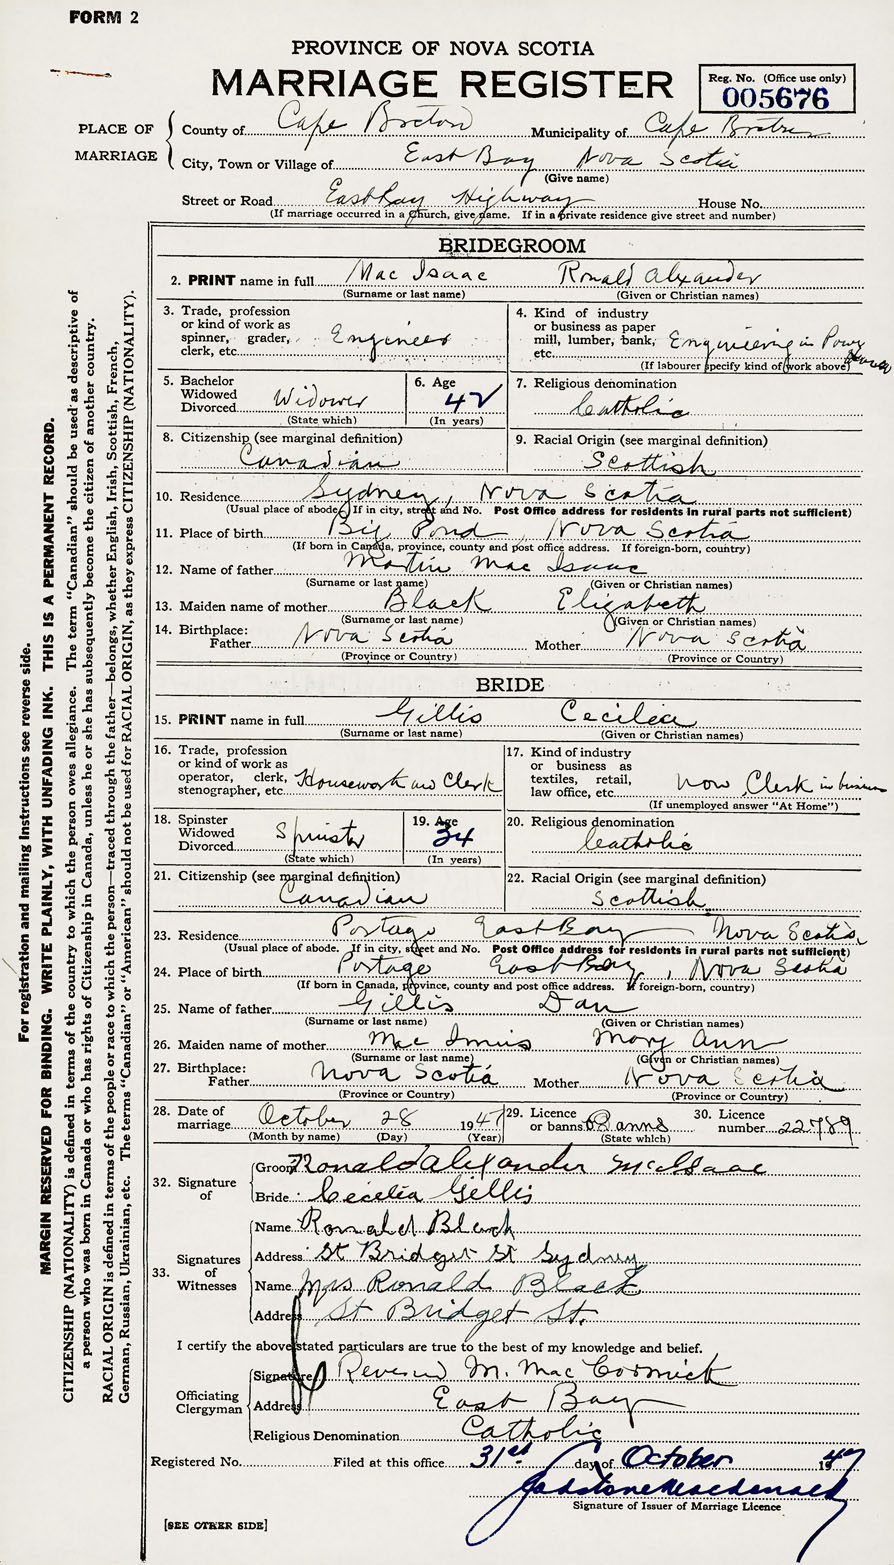 FORM 2
PROVINCE OF NOVA SCOTIA
MARRIAGE REGISTER
Reg. No. (Office use only)
005676
PLACE OF MARRIAGE
County of Cape Breton Municipality of Cape Breton
City, Town or Village of East Bay Nova Scotia
(Give name)
Street or Road East Bay Highway House No.
(If marriage occurred in a church, give name. If in a private residence give street and number)
BRIDEGROOM
2. PRINT name in full Mac Isaac Ronald Alexander
(Surname or last name) (Given or Christian names)
3. Trade, profession or kind of work as spinner, grader, clerk, etc. Engineer
4. Kind of industry or business as paper mill, lumber, bank, etc. Engineering in Power
(If labourer specify kind of work above)
5. Bachelor Widowed Divorced Widower
(State which)
6. Age 42
(In years)
7. Religious denomination Catholic
8. Citizenship (see marginal definition) Canadian
9. Racial Origin (see marginal definition) Scottish
10. Residence Sydney, Nova Scotia
(Usual place of abode. If in city, street and No. Post Office address for residents in rural parts not sufficient)
11. Place of birth Big Pond, Nova Scotia
(If born in Canada, province, county and post office address. If foreign-born, country)
12. Name of father Martin Mac Isaac
(Surname or last name) (Given or Christian names)
13. Maiden name of mother Black Elizabeth
(Surname or last name) (Given or Christian names)
14. Birthplace: Father Nova Scotia Mother Nova Scotia
(Province or Country) (Province or Country)
BRIDE
15. PRINT name in full Gillis Cecilia
(Surname or last name) (Given or Christian names)
16. Trade, profession or kind of work as operator, clerk, stenographer, etc. Housework and Clerk
17. Kind of industry or business as textiles, retail, law office, etc. now, Clerk in business
(If unemployed answer "At Home")
18. Spinster Widowed Divorced Spinster
(State which)
19. Age 34
(In years)
20. Religious denomination Catholic
21. Citizenship (see marginal definition) Canadian
22. Racial Origin (see marginal definition) Scottish
23. Residence Portage East Bay Nova Scotia
(Usual place of abode. If in city, street and No. Post Office address for residents in rural parts not sufficient)
24. Place of birth Portage East Bay, Nova Scotia
(If born in Canada, province, county and post office address. If foreign-born, country)
25. Name of father Gillis Dan
(Surname or last name) (Given or Christian names)
26. Maiden name of mother Mac Innis Mary Ann
(Surname or last name) (Given or Christian names)
27. Birthplace: Father Nova Scotia Mother Nova Scotia
(Province or Country) (Province or Country)
28. Date of marriage October 28 1947
(Month by name) (Day) (Year)
29. Licence or banns Banns
(State which)
30. Licence number 22789
32. Signature of
Groom Ronald Alexander McIsaac
Bride Cecelia Gillis
33. Signatures of Witnesses
Name Ronald Black
Address St Bridget St Sydney
Name Mrs Ronald Black
Address St Bridget St.
I certify the above stated particulars are true to the best of my knowledge and belief.
Officiating Clergyman
Signature Reverend M. Mac Cormick
Address East Bay
Religious Denomination Catholic
Registered No. Filed at this office 31st day of October 1947
Signature of Issuer of Marriage Licence
[SEE OTHER SIDE]
For registration and mailing instructions see reverse side.
MARGIN RESERVED FOR BINDING. WRITE PLAINLY, WITH UNFADING INK. THIS IS A PERMANENT RECORD.
CITIZENSHIP (NATIONALITY) is defined in terms of the country to which the person owes allegiance. The term "Canadian" should be used as descriptive of
a person who was born in Canada or who has rights of Citizenship in Canada, unless he or she has subsequently become the citizen of another country.
RACIAL ORIGIN is defined in terms of the people or race to which the person—traced through the father—belongs, whether English, Irish, Scottish, French,
German, Russian, Ukrainian, etc. The terms "Canadian" or "American" should not be used for RACIAL ORIGIN, as they express CITIZENSHIP (NATIONALITY).